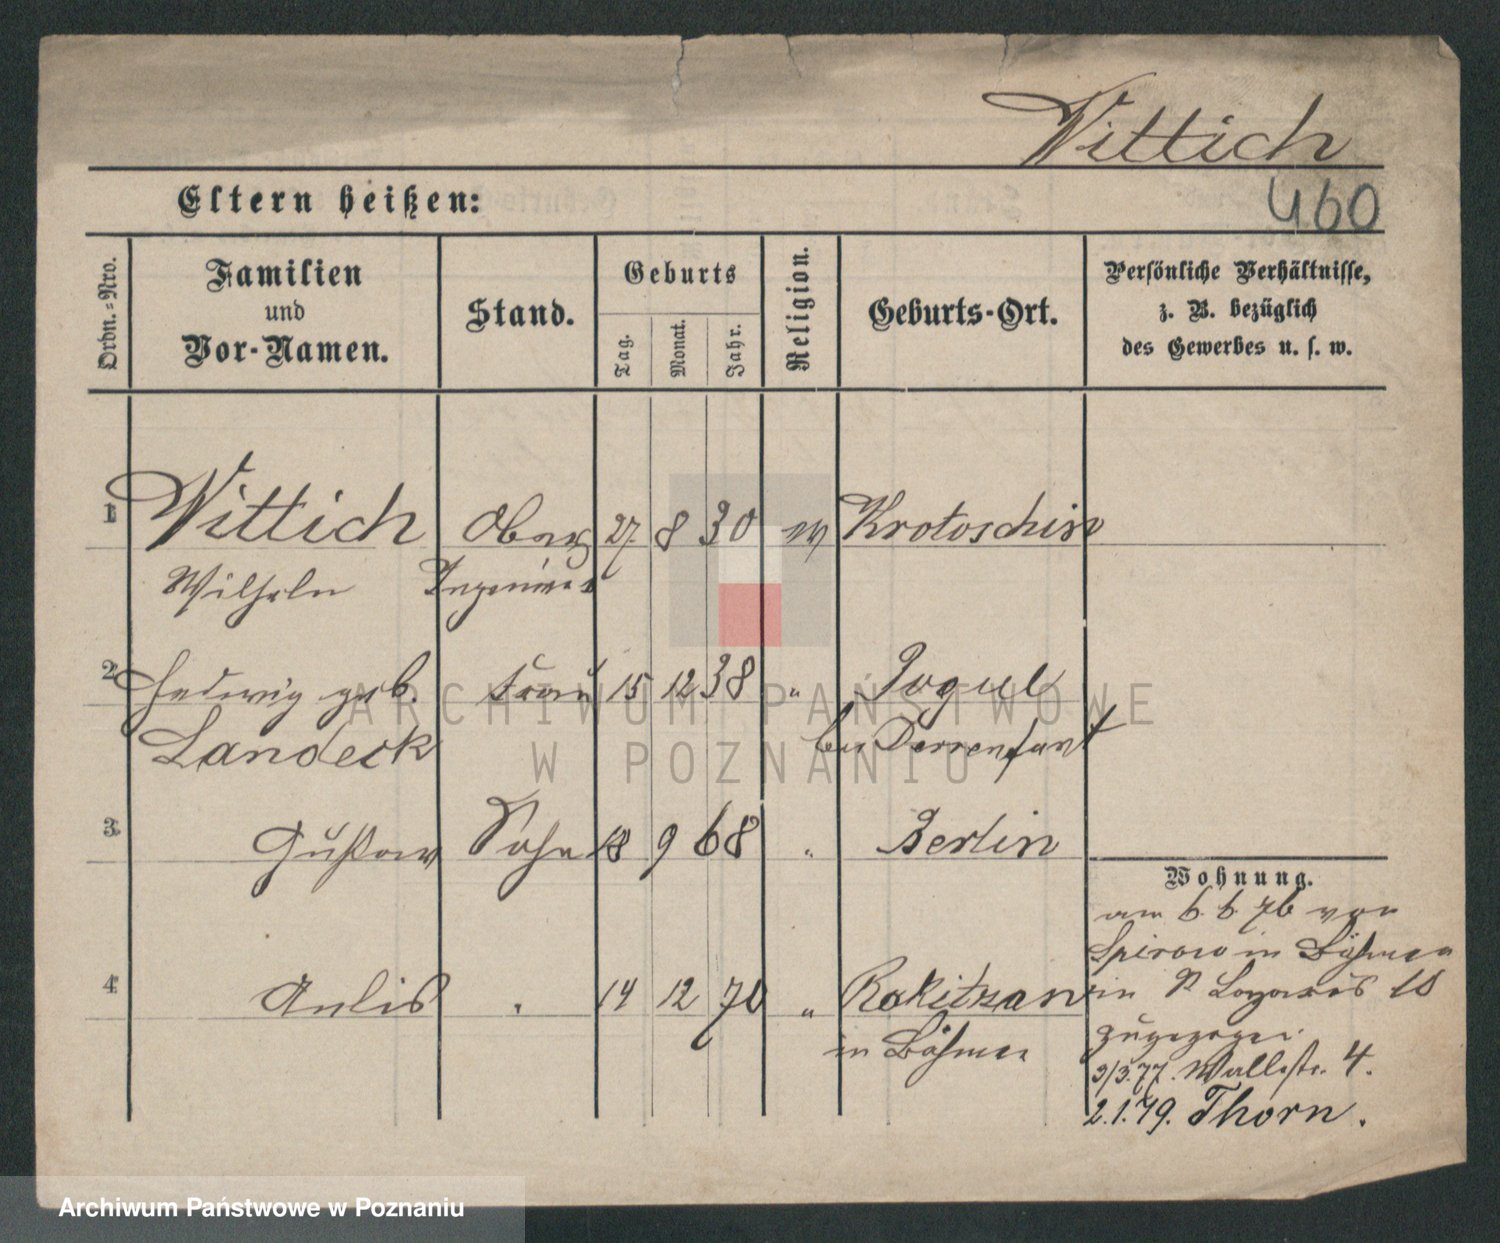 Wittich
Eltern heißen:
460
Ordn.-Nro.
Familien
und
Vor-Namen.
Stand.
Geburts
Tag.
Monat.
Jahr.
Religion.
Geburts-Ort.
Persönliche Verhältnisse,
z. B. bezüglich
des Gewerbes u. s. w.
1 Wittich Ober 27. 8 30 ev Krotoschin
Wilhelm Ingenieur
2 Hedwig geb. Frau 15 12 38 "
Landeck bei
3 Gustav Sohn 18 9 68 " Berlin
4 " 14 12 70 " Rokitzan
in Böhmen
Wohnung.
am 6. 6. 76 von
in Böhmen
in St Lazarus 18
zugezogen
3/3.77. Wallstr. 4.
2.1.79. Thorn.
ARCHIWUM PAŃSTWOWE
W POZNANIU
Archiwum Państwowe w Poznaniu